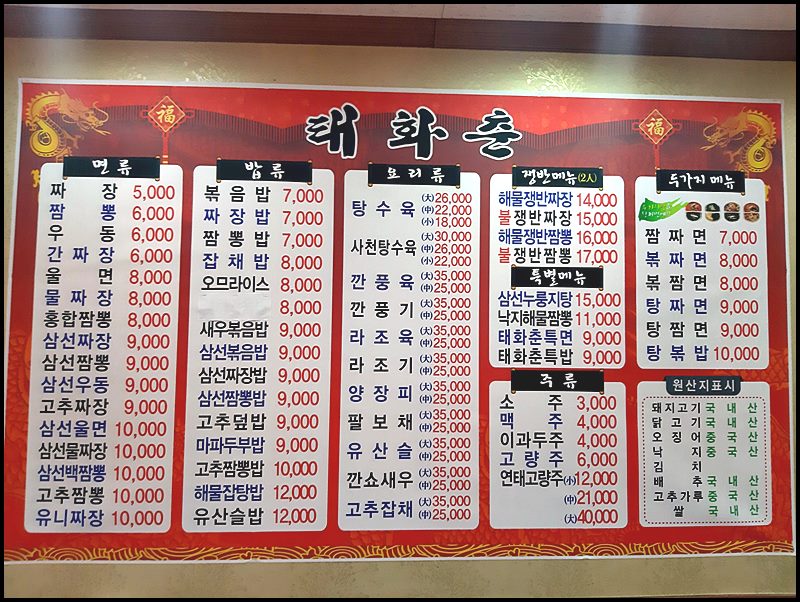 福
福
태화춘
면류
짜장 5,000
짬뽕 6,000
우동 6,000
간짜장 6,000
울면 8,000
물짜장 8,000
홍합짬뽕 8,000
삼선짜장 9,000
삼선짬뽕 9,000
삼선우동 9,000
고추짜장 9,000
삼선울면 10,000
삼선물짜장 10,000
삼선백짬뽕 10,000
고추짬뽕 10,000
유니짜장 10,000
밥류
볶음밥 7,000
짜장밥 7,000
짬뽕밥 7,000
잡채밥 8,000
오므라이스 8,000
8,000
새우볶음밥 9,000
삼선볶음밥 9,000
삼선짜장밥 9,000
삼선짬뽕밥 9,000
고추덮밥 9,000
마파두부밥 9,000
고추짬뽕밥 10,000
해물잡탕밥 12,000
유산슬밥 12,000
요리류
탕수육 (大)26,000
(中)22,000
(小)18,000
사천탕수육 (大)30,000
(中)26,000
(小)22,000
깐풍육 (大)35,000
(中)25,000
깐풍기 (大)35,000
(中)25,000
라조육 (大)35,000
(中)25,000
라조기 (大)35,000
(中)25,000
양장피 (大)35,000
(中)25,000
팔보채 (大)35,000
(中)25,000
유산슬 (大)35,000
(中)25,000
깐쇼새우 (大)35,000
(中)25,000
고추잡채 (大)35,000
(中)25,000
쟁반메뉴(2人)
해물쟁반짜장 14,000
불쟁반짜장 15,000
해물쟁반짬뽕 16,000
불쟁반짬뽕 17,000
특별메뉴
삼선누룽지탕 15,000
낙지해물짬뽕 11,000
태화춘특면 9,000
태화춘특밥 9,000
주류
소주 3,000
맥주 4,000
이과두주 4,000
고량주 6,000
연태고량주(小)12,000
(中)21,000
(大)40,000
두가지메뉴
짬짜면 7,000
볶짜면 8,000
볶짬면 8,000
탕짜면 9,000
탕짬면 9,000
탕볶밥 10,000
원산지표시
돼지고기 국내산
닭고기 국내산
오징어 중국산
낙지 중국산
김치
배추 국내산
고추가루 중국산
쌀 국내산